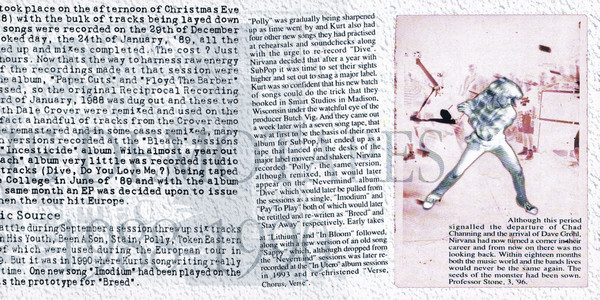 took place on the afternoon of Christmas Eve
8) with the bulk of tracks being layed down
songs were recorded on the 29th of December
ooked day, the 24th of January, '89, all the
ed up and mixes completed. The cost ? Just
hours. Now thats the way to harness raw energy
f the recordings made at that session were
he album, "Paper Cuts" and "Floyd The Barber"
ssed, so the original Reciprocal Recording
rd of January, 1988 was dug out and these two
th Dale Crover were remixed and used on the
fact a handful of tracks from the Crover demo
remastered and in some cases remixed, many
n versions recorded at the "Bleach" sessions
"Incesticide" album. With almost a year out
each" album very little was recorded studio
tracks (Dive, Do You Love Me ?) being taped
College in June of '89 and with the album
same month an EP was decided upon to issue
hen the tour hit Europe.
ic Source
attle during September a session threw up six tracks
n His Youth, Been A Son, Stain, Polly, Token Eastern
f which were used during the European tour in
9. But it was in 1990 where Kurts songwriting really
time. One new song "Imodium" had been played on the
s the prototype for "Breed".
"Polly" was gradually being sharpened
up as time went by and Kurt also had
four other new songs they had practised
at rehearsals and soundchecks along
with the urge to re-record "Dive".
Nirvana decided that after a year with
SubPop it was time to set their sights
higher and set out to snag a major label.
Kurt was so confident that his new batch
of songs could do the trick that they
booked in Smart Studios in Madison,
Wisconsin under the watchful eye of the
producer Butch Vig. And they came out
a week later with a seven song tape, that
was at first to be the basis of their next
album for SubPop, but ended up as a
tape that landed on the desks of the
major label movers and shakers. Nirvana
recorded "Polly" the same version,
although remixed, that would later
appear on the "Nevermind" album...
"Dive" which would later be pulled from
the sessions as a single, "Imodium" and
"Pay To Play" both of which would later
be retitled and re-written as "Breed" and
"Stay Away" respectively. Early takes
of "Lithium" and "In Bloom" followed,
along with a new version of an old song
"Sappy" which, although dropped from
the "Nevermind" sessions was later re-
recorded at the "In Utero" album sessions
in 1993 and re-christened "Verse,
Chorus, Verse".
Although this period
signalled the departure of Chad
Channing and the arrival of Dave Grohl,
Nirvana had now turned a corner in their
career and from now on there was no
looking back. Within eighteen months
both the music world and the bands lives
would never be the same again. The
seeds of the monster had been sown.
Professor Stone, 3, '96.